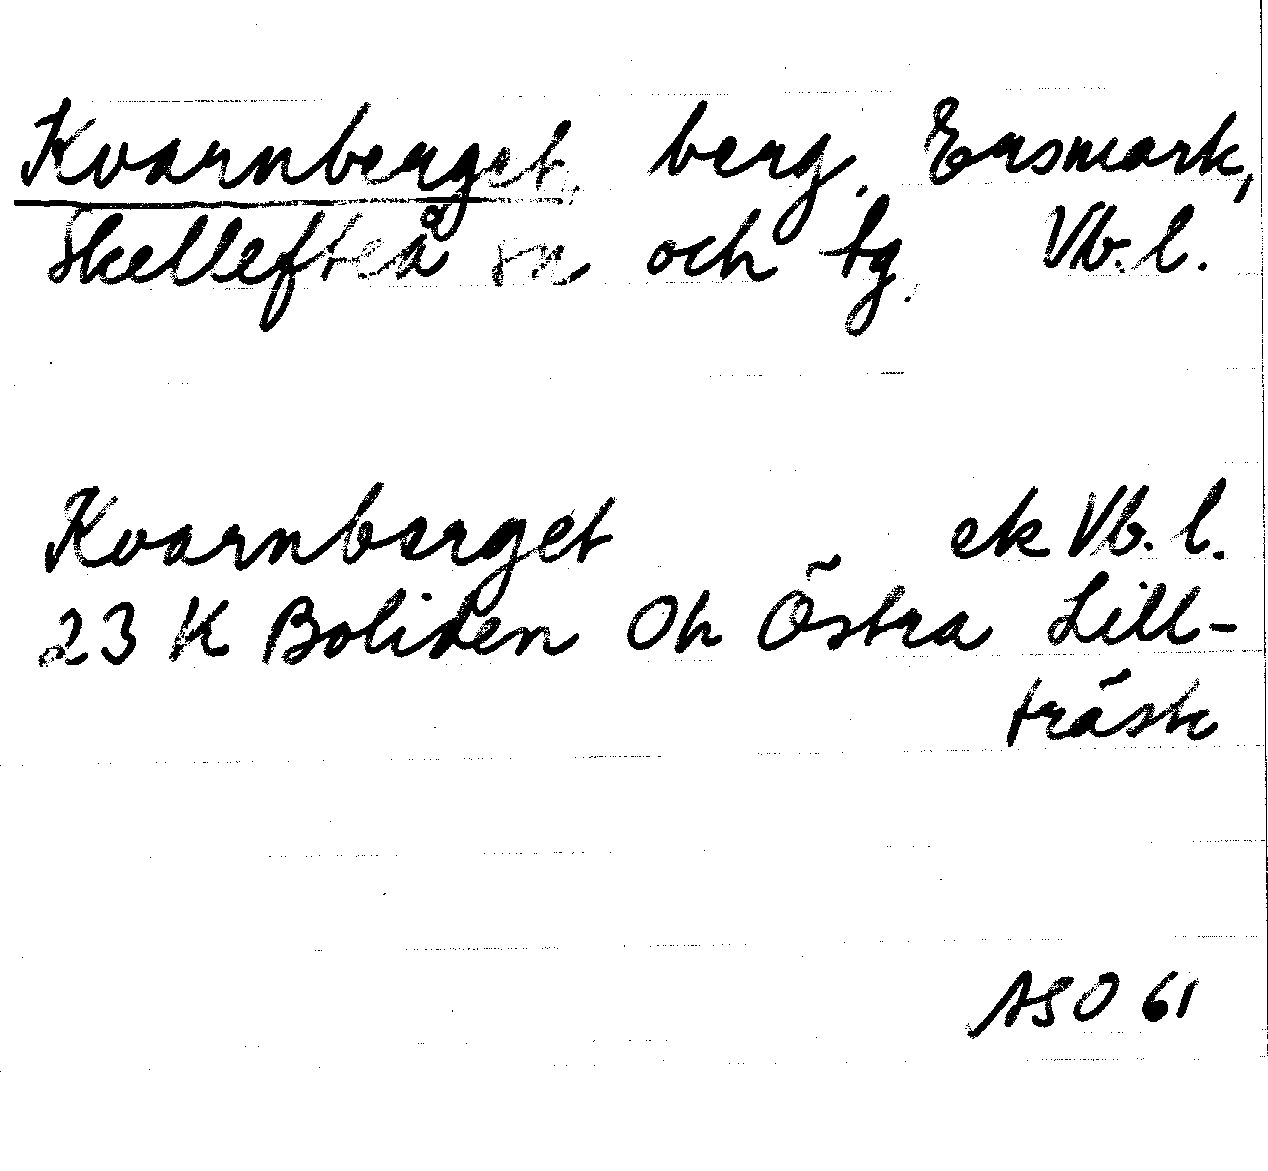 Kvarnberget, berg, Ersmark,
Skellefteå sn och tg, Vb. l.
Kvarnberget ek Vb. l.
23 K Boliden Oh Östra Lill-
träsk
ASO 61